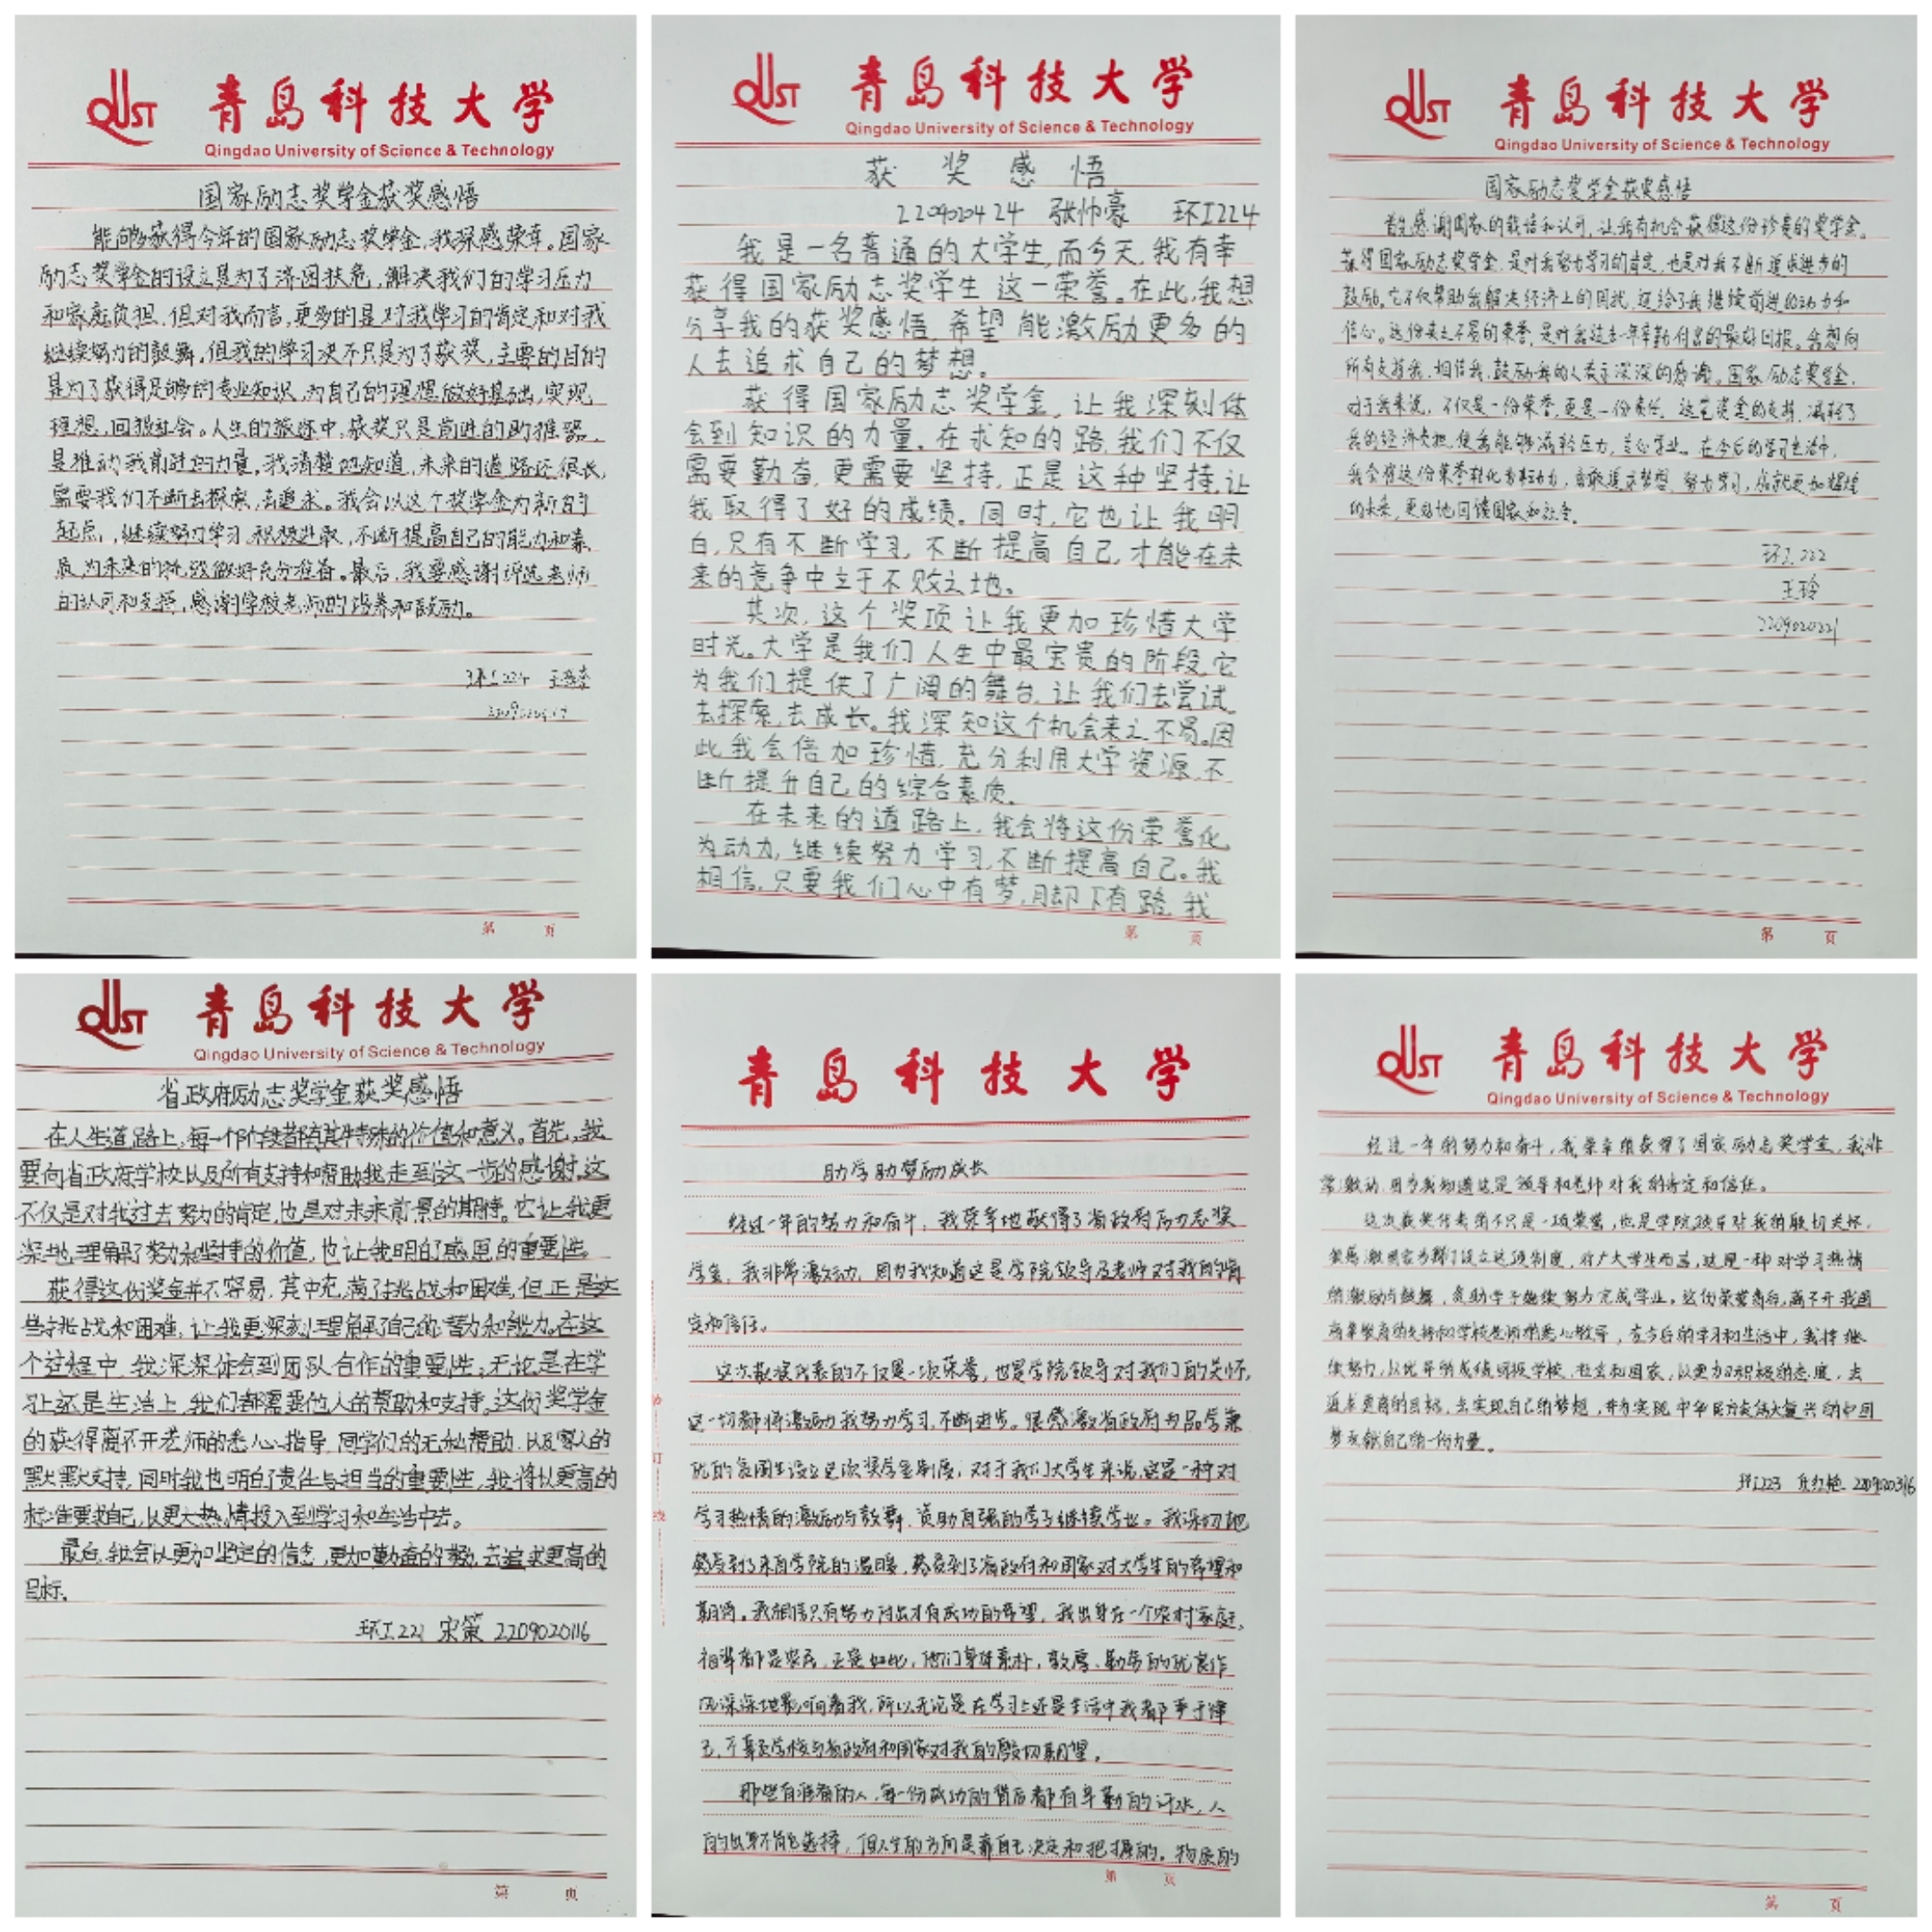 QUST 青岛科技大学
Qingdao University of Science & Technology
国家励志奖学金获奖感悟
能够获得今年的国家励志奖学金,我深感荣幸。国家
励志奖学金的设立是为了济困扶危,解决我们的学习压力
和家庭负担,但对我而言,更多的是对我学习的肯定和对我
继续努力的鼓舞,但我的学习决不只是为了获奖,主要的目的
是为了获得足够的专业知识,为自己的理想做好基础,实现
理想,回报社会。人生的旅途中,获奖只是前进的助推器,
是推动我前进的力量,我清楚地知道,未来的道路还很长,
需要我们不断去探索,去追求。我会以这个奖学金为新的
起点,继续努力学习,积极进取,不断提高自己的能力和素
质,为未来的挑战做好充分准备。最后,我要感谢评选老师
的认可和支持,感谢学校老师的培养和鼓励。
环工224
第 页
QUST 青岛科技大学
Qingdao University of Science & Technology
获奖感悟
2209020424 张帅豪 环工224
我是一名普通的大学生,而今天,我有幸
获得国家励志奖学生这一荣誉。在此,我想
分享我的获奖感悟,希望能激励更多的
人去追求自己的梦想。
获得国家励志奖学金,让我深刻体
会到知识的力量。在求知的路,我们不仅
需要勤奋,更需要坚持,正是这种坚持,让
我取得了好的成绩。同时,它也让我明
白,只有不断学习,不断提高自己,才能在未
来的竞争中立于不败之地。
其次,这个奖项让我更加珍惜大学
时光。大学是我们人生中最宝贵的阶段,它
为我们提供了广阔的舞台,让我们去尝试,
去探索,去成长。我深知这个机会来之不易。因
此我会倍加珍惜,充分利用大学资源,不
断提升自己的综合素质。
在未来的道路上,我会将这份荣誉化
为动力,继续努力学习,不断提高自己。我
相信,只要我们心中有梦,脚下有路,我
第 页
QUST 青岛科技大学
Qingdao University of Science & Technology
国家励志奖学金获奖感悟
首先感谢国家的栽培和认可,让我有机会获得这份珍贵的奖学金。
获得国家励志奖学金,是对我努力学习的肯定,也是对我不断追求进步的
鼓励。它不仅帮助我解决经济上的困扰,还给了我继续前进的动力和
信心。这份来之不易的荣誉,是对我过去一年辛勤付出的最好回报。我想向
所有支持我、相信我、鼓励我的人表示深深的感谢。国家励志奖学金,
对于我来说,不仅是一份荣誉,更是一份责任。这笔奖金的支持,减轻了
我的经济负担,使我能够减轻压力,专心学业。在今后的学习生活中,
我会将这份荣誉转化为动力,勇敢追求梦想,努力学习,成就更加辉煌
的未来,更好地回馈国家和社会。
环工222
王玲
2209020221
第 页
QUST 青岛科技大学
Qingdao University of Science & Technology
省政府励志奖学金获奖感悟
在人生道路上,每一个阶段都有其特殊的价值和意义。首先,我
要向省政府学校以及所有支持和帮助我走到这一步的感谢,这
不仅是对我过去努力的肯定,也是对未来前景的期待。它让我更
深地理解了努力和坚持的价值,也让我明白了感恩的重要性。
获得这份奖金并不容易,其中充满了挑战和困难,但正是这
些挑战和困难,让我更深刻理解了自己的努力和能力。在这
个过程中,我深深体会到团队合作的重要性;无论是在学
习上还是生活上,我们都需要他人的帮助和支持。这份奖学金
的获得离不开老师的悉心指导,同学们的无私帮助,以及家人的
默默支持,同时我也明白了责任与担当的重要性,我将以更高的
标准要求自己,以更大热情投入到学习和生活中去。
最后,我会以更加坚定的信念,更加勤奋的努力,去追求更高的
目标。
环工221 宋策 2209020116
第 页
青岛科技大学
助学助梦励成长
经过一年的努力和奋斗,我荣幸地获得了省政府励志奖
学金,我非常激动,因为我知道这是学院领导及老师对我的肯
定和信任。
这次获奖代表的不仅是一项荣誉,也是学院领导对我们的关怀,
这一切都将激励我努力学习,不断进步。很感激省政府为品学兼
优的贫困生设立这次奖学金制度,对于我们大学生来说,这是一种对
学习热情的激励与鼓舞,资助自强的学子继续学业。我深切地
感受到了来自学院的温暖,感受到了省政府和国家对大学生的希望和
期待。我相信只有努力付出才有成功的希望,我出身在一个农村家庭,
祖辈都是农民,正是如此,他们身体素朴,敦厚、勤劳的优良作
风深深地影响着我,所以无论是在学习上还是生活中我都事于律
己,不辜负学校与省政府和国家对我的殷切期望。
那些有准备的人,每一份成功的背后都有辛勤的汗水,人
的出身不能选择,但人生的方向是靠自己决定和把握的。物质的
第 页
QUST 青岛科技大学
Qingdao University of Science & Technology
经过一年的努力和奋斗,我荣幸的获得了国家励志奖学金,我非
常激动,因为我知道这是领导和老师对我的肯定和信任。
这次获奖代表的不只是一项荣誉,也是学院领导对我的殷切关怀,
很感激国家为我们设立这项制度,对广大学生而言,这是一种对学习热情
的激励与鼓舞,资助学子继续努力完成学业。这份荣誉背后,离不开我国
高等教育的支持和学校老师的悉心教导,在今后的学习和生活中,我将继
续努力,以优异的成绩回报学校、社会和国家,以更加积极的态度,去
追求更高的目标,去实现自己的梦想,并为实现中华民族伟大复兴的中国
梦贡献自己的一份力量。
环工223 2209020316
第 页